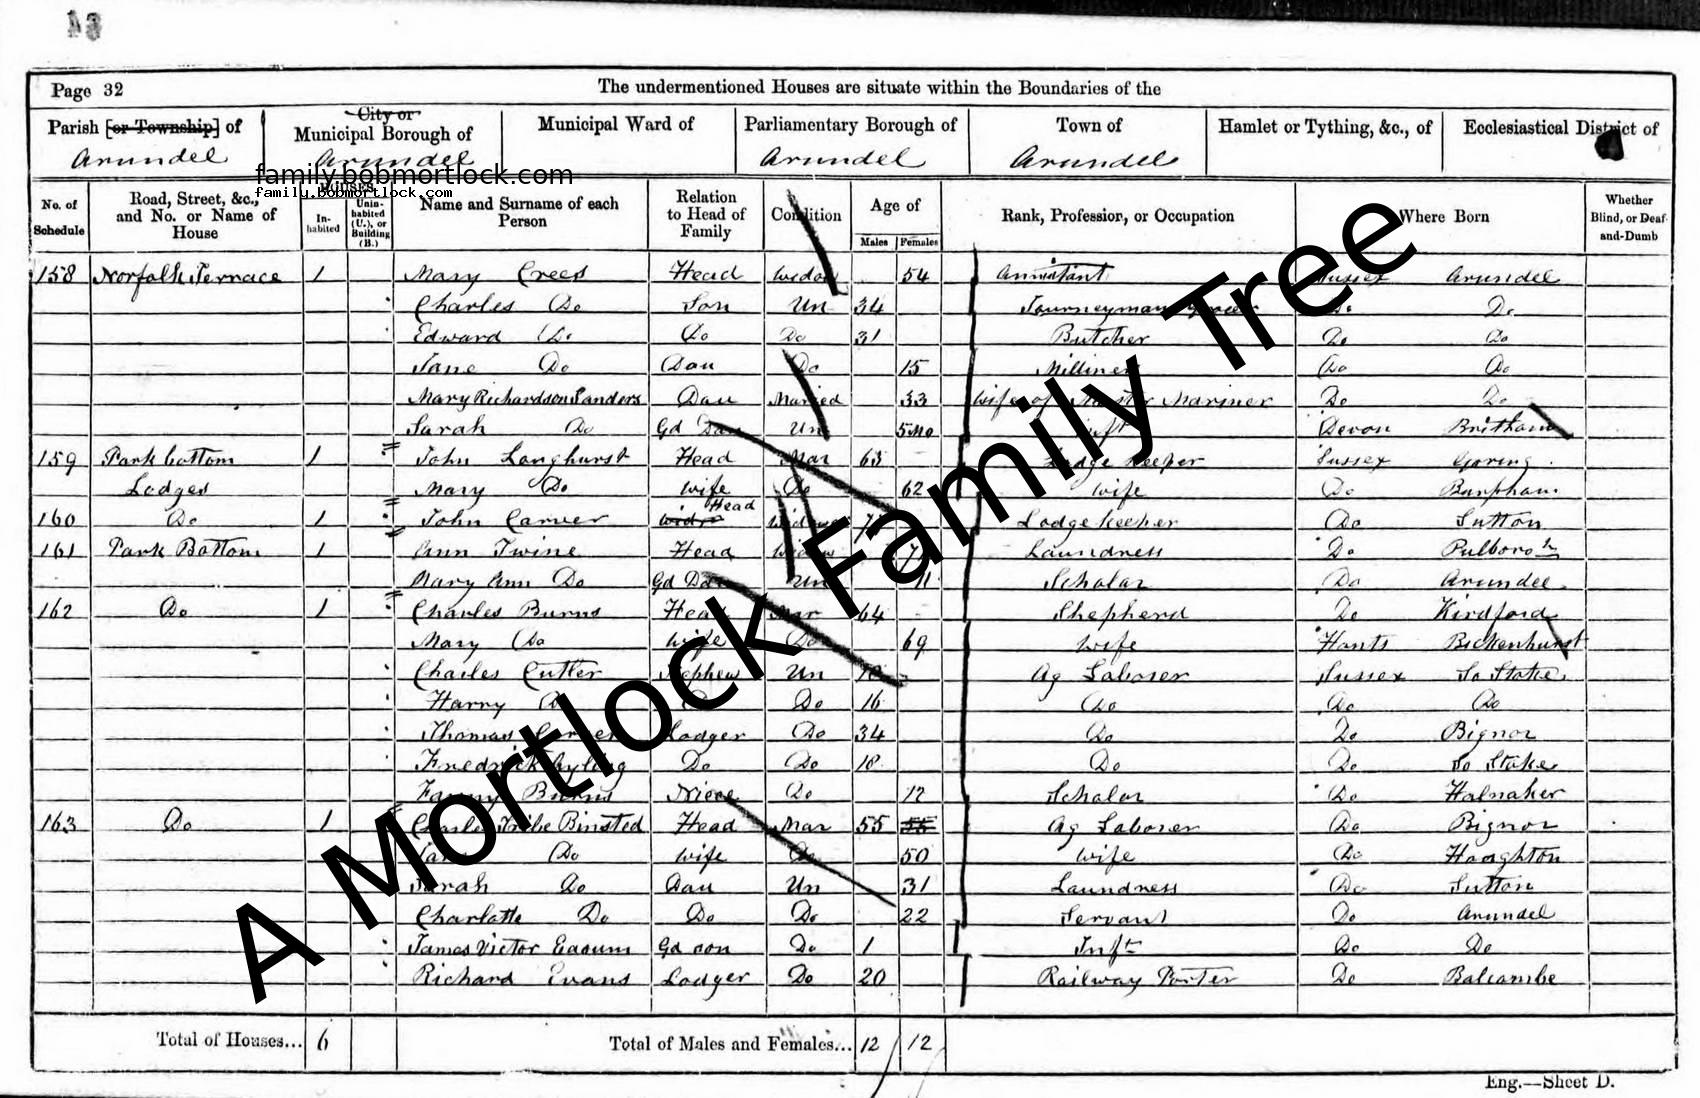 Page 32 The undermentioned Houses are situate within the Boundaries of the
Parish [or Township] of City or Municipal Borough of Municipal Ward of Parliamentary Borough of Town of Hamlet or Tything, &c., of Ecclesiastical District of
Arundel Arundel Arundel Arundel
family.bobmortlock.com
family.bobmortlock.com
No. of Schedule Road, Street, &c., and No. or Name of House HOUSES In-habited Unin-habited (U.), or Building (B.) Name and Surname of each Person Relation to Head of Family Condition Age of Males Females Rank, Profession, or Occupation Where Born Whether Blind, or Deaf-and-Dumb
158 Norfolk Terrace 1 Mary Crees Head Widow 54 Annuitant Sussex Arundel
Charles Do Son Un 34 Journeyman Do Do
Edward Do Do Do 31 Butcher Do Do
Jane Do Dau Do 15 Milliner Do Do
Mary Richardson Sanders Dau Married 33 Wife of Master Mariner Do Do
Sarah Do Gd Dau Un 5 Mo Inft Devon Brixham
159 Park bottom 1 John Longhurst Head Mar 63 Lodge Keeper Sussex Goring
Lodges Mary Do Wife Do 62 Wife Do Burpham
160 Do 1 John Carver Head Widower Lodge keeper Do Sutton
161 Park Bottom 1 Ann Twine Head Widow Laundress Do Pulboro
Mary Ann Do Gd Dau Un 11 Scholar Do Arundel
162 Do 1 Charles Burns Head Mar 64 Shepherd Do Kirdford
Mary Do Wife Do 69 Wife Hants Bickenhurst
Charles Cutler Nephew Un Ag Laborer Sussex So Stoke
Harry Do Do 16 Do Do Do
Thomas Lodger Do 34 Do Do Bignor
Fredrick Ayling Do Do 18 Do Do So Stoke
Fanny Burns Niece Do 12 Scholar Do Halnaker
163 Do 1 Charles Tribe Binsted Head Mar 55 55 Ag Laborer Do Bignor
Jane Do Wife Do 50 Wife Do Houghton
Sarah Do Dau Un 31 Laundress Do Sutton
Charlotte Do Do Do 22 Servant Do Arundel
James Victor Gd son Do 1 Inft Do Do
Richard Evans Lodger Do 20 Railway Porter Do Balcombe
Total of Houses... 6 Total of Males and Females... 12 12
Eng.—Sheet D.
A Mortlock Family Tree